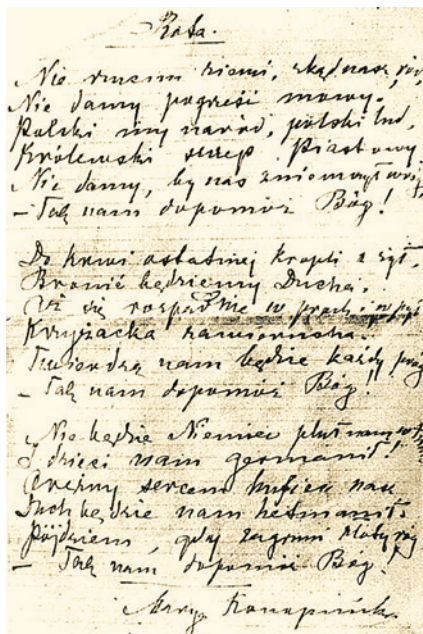 Rota.
Nie rzucim ziemi, skąd nasz ród,
Nie damy pogrześć mowy.
Polski my naród, polski lud,
Królewski szczep Piastowy.
Nie damy, by nas zniemczył wróg
– Tak nam dopomóż Bóg!
Do krwi ostatniej kropli z żył,
Bronić będziemy Ducha.
Aż się rozpadnie w proch i w pył
Krzyżacka zawierucha.
Twierdzą nam będzie każdy próg
– Tak nam dopomóż Bóg!
Nie będzie Niemiec pluł nam w twarz
I dzieci nam germanił!
Orężny hufiec nasz
Duch będzie nam hetmanił.
Pójdziem, gdy zagrzmi złoty róg
– Tak nam dopomóż Bóg!
Marya Konopnicka